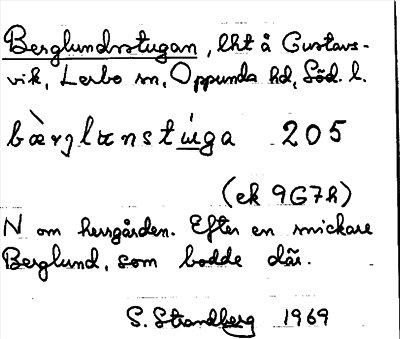 Berglundsstugan, lht å Gustavs-
vik, Lerbo sn, Oppunda hd, Söd. l.
bæ̀rjlɯnstɯ́ga 205
(ek 9G7h)
N om herrgården. Efter en snickare
Berglund, som bodde där.
S. Strandberg 1969